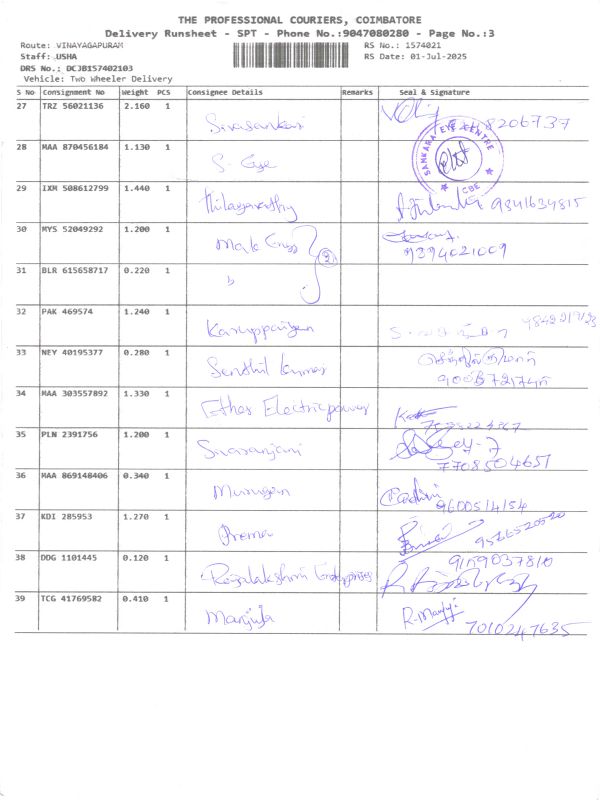 THE PROFESSIONAL COURIERS, COIMBATORE
Delivery Runsheet - SPT - Phone No.:9047080280 - Page No.:3
Route: VINAYAGAPURAM RS No.: 1574021
Staff: USHA RS Date: 01-Jul-2025
DRS No.: DCJB157402103
Vehicle: Two Wheeler Delivery
S No Consignment No Weight PCS Consignee Details Remarks Seal & Signature
27 TRZ 56021136 2.160 1
Sivasankari 8206737
28 MAA 870456184 1.130 1
S. Eye SANKARA EYE CENTRE CBE
29 IXM 508612799 1.440 1
Thilagavathy 9341634815
30 MYS 52049292 1.200 1
2 9394021009
31 BLR 615658717 0.220 1
32 PAK 469574 1.240 1
Karuppaiyan
33 NEY 40195377 0.280 1
Senthil Kumar செந்தில்குமார்
34 MAA 303557892 1.330 1
Ether Electricpower
35 PLN 2391756 1.200 1
Sivaranjani 7708504651
36 MAA 869148406 0.340 1
Murugan 9600514154
37 KDI 285953 1.270 1
Prema
38 DDG 1101445 0.120 1
Rajalakshmi Enterprises 9159037810
39 TCG 41769582 0.410 1
Manjula R. Manju 7010247635